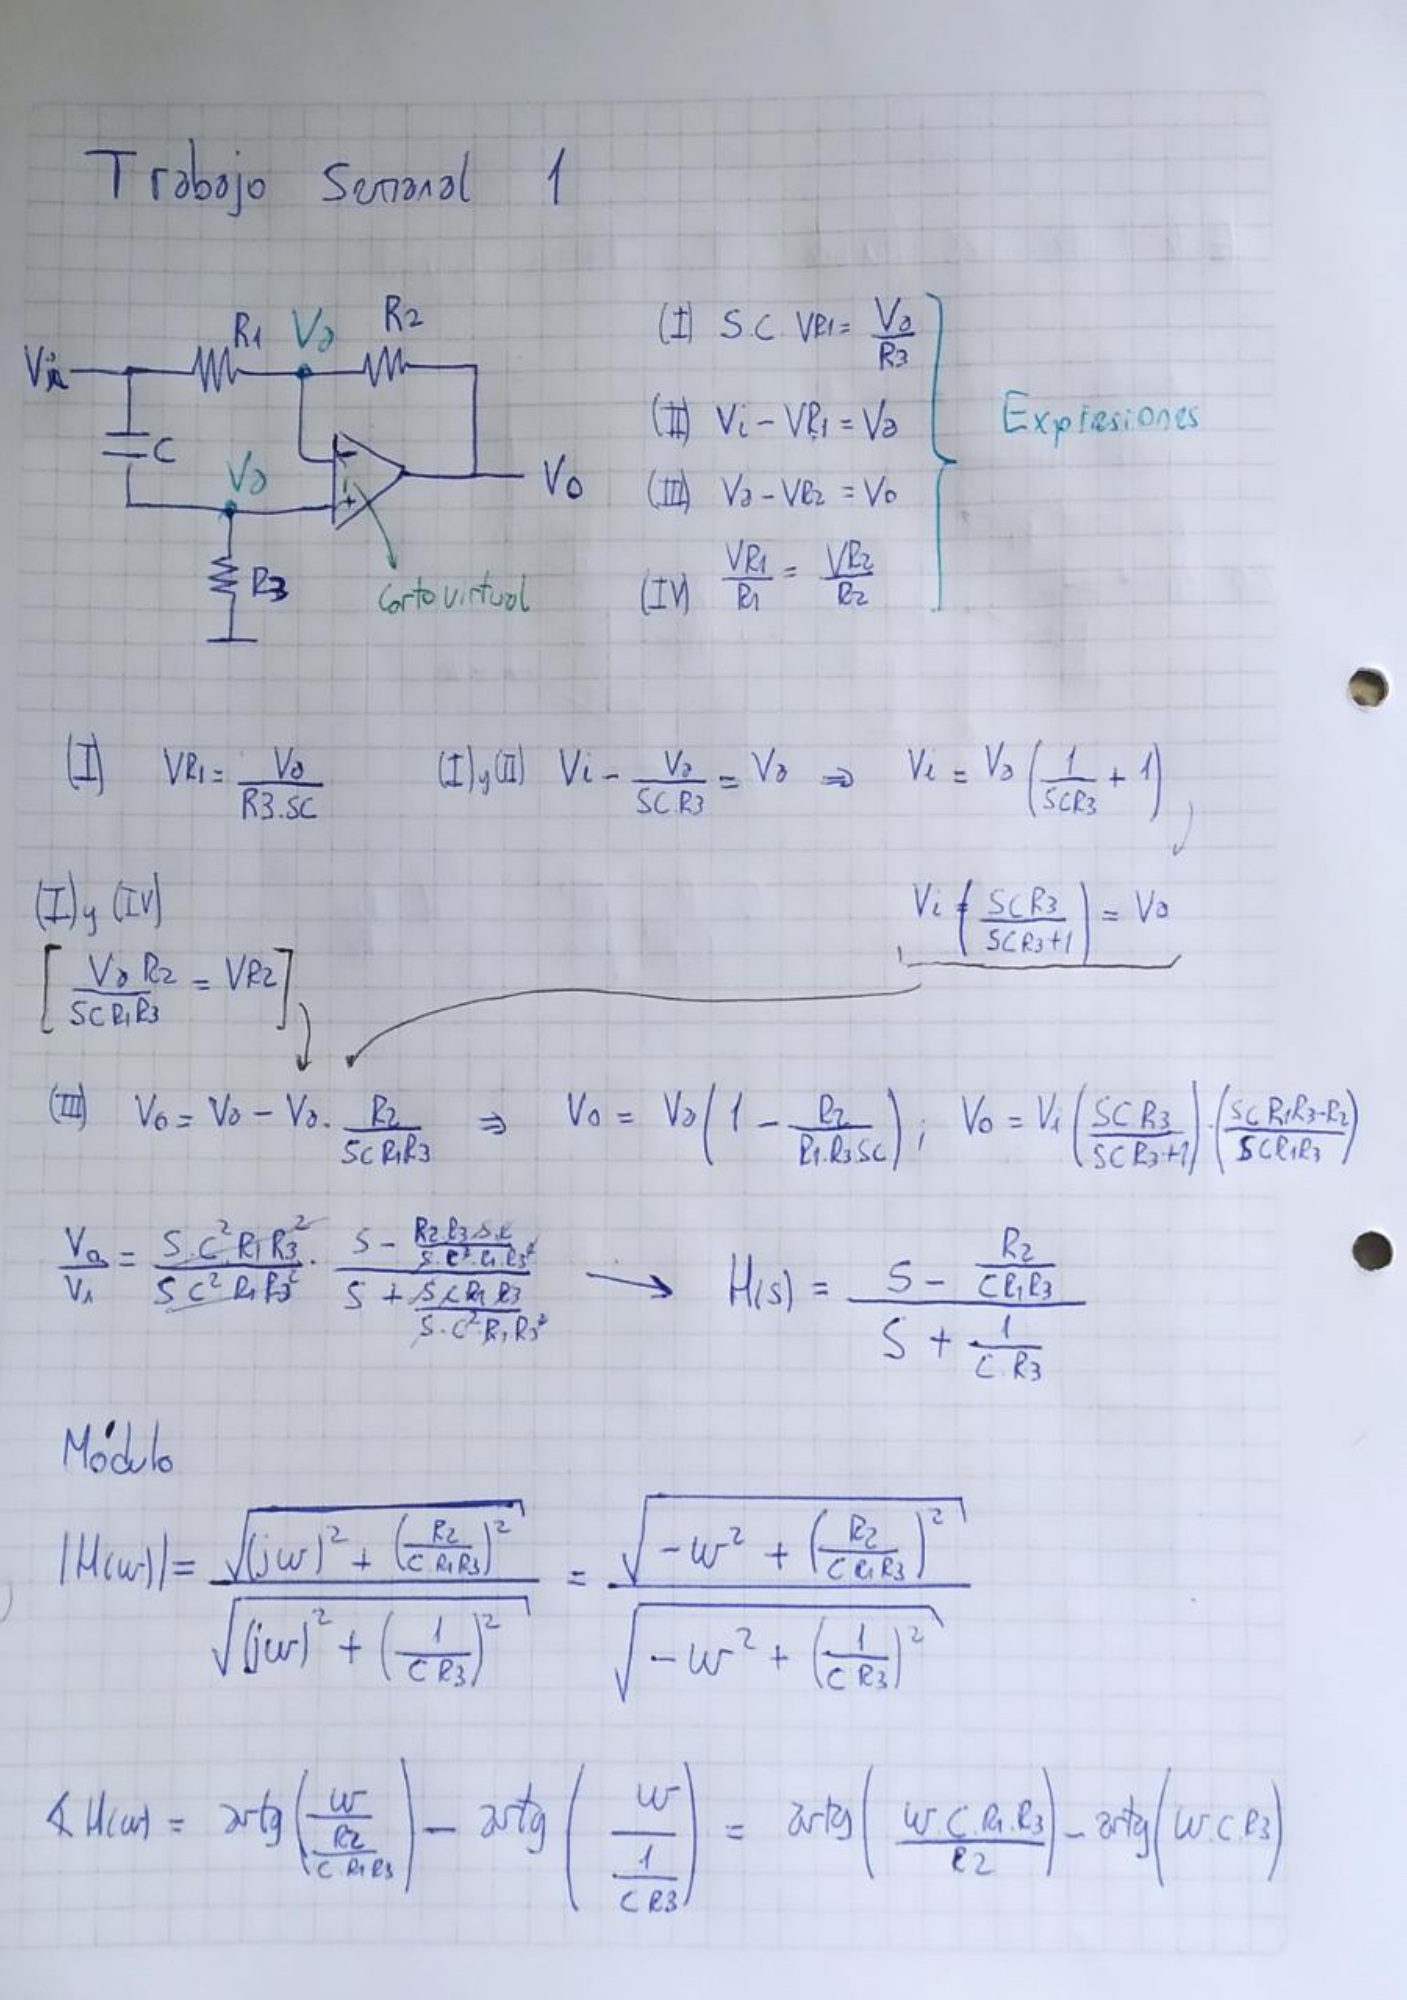 Trabajo Semanal 1
R1 Va R2
Vin
C
Va
- +
Vo
R3
Corto virtual
(I) S.C. VR1 = Va/R3
(II) Vi - VR1 = Va
(III) Va - VR2 = Vo
(IV) VR1/R1 = VR2/R2
Expresiones
(I) VR1 = Va/(R3.SC) (I) y (II) Vi - Va/(SC.R3) = Va ⇒ Vi = Va (1/(SCR3) + 1)
Vi (SCR3/(SCR3+1)) = Va
(I) y (IV)
[Va R2/(SCR1R3) = VR2]
(III) Vo = Va - Va . R2/(SCR1R3) ⇒ Vo = Va (1 - R2/(R1.R3SC)) ; Vo = Vi (SCR3/(SCR3+1)) . ((SCR1R3-R2)/(SCR1R3))
Vo/Vi = (S.C²R1R3²)/(SC²R1R3²) . (S - (R2.R3.S.C)/(S.C².R1.R3²))/(S + (SCR1R3)/(S.C².R1R3²)) → H(s) = (S - R2/(CR1R3))/(S + 1/(C.R3))
Módulo
|H(w)| = √((jw)² + (R2/(CR1R3))²)/√((jw)² + (1/(CR3))²) = √(-w² + (R2/(CR1R3))²)/√(-w² + (1/(CR3))²)
∢ H(w) = artg (w/(R2/(C.R1R3))) - artg (w/(1/(CR3))) = artg (w.C.R1.R3/R2) - artg (w.C.R3)